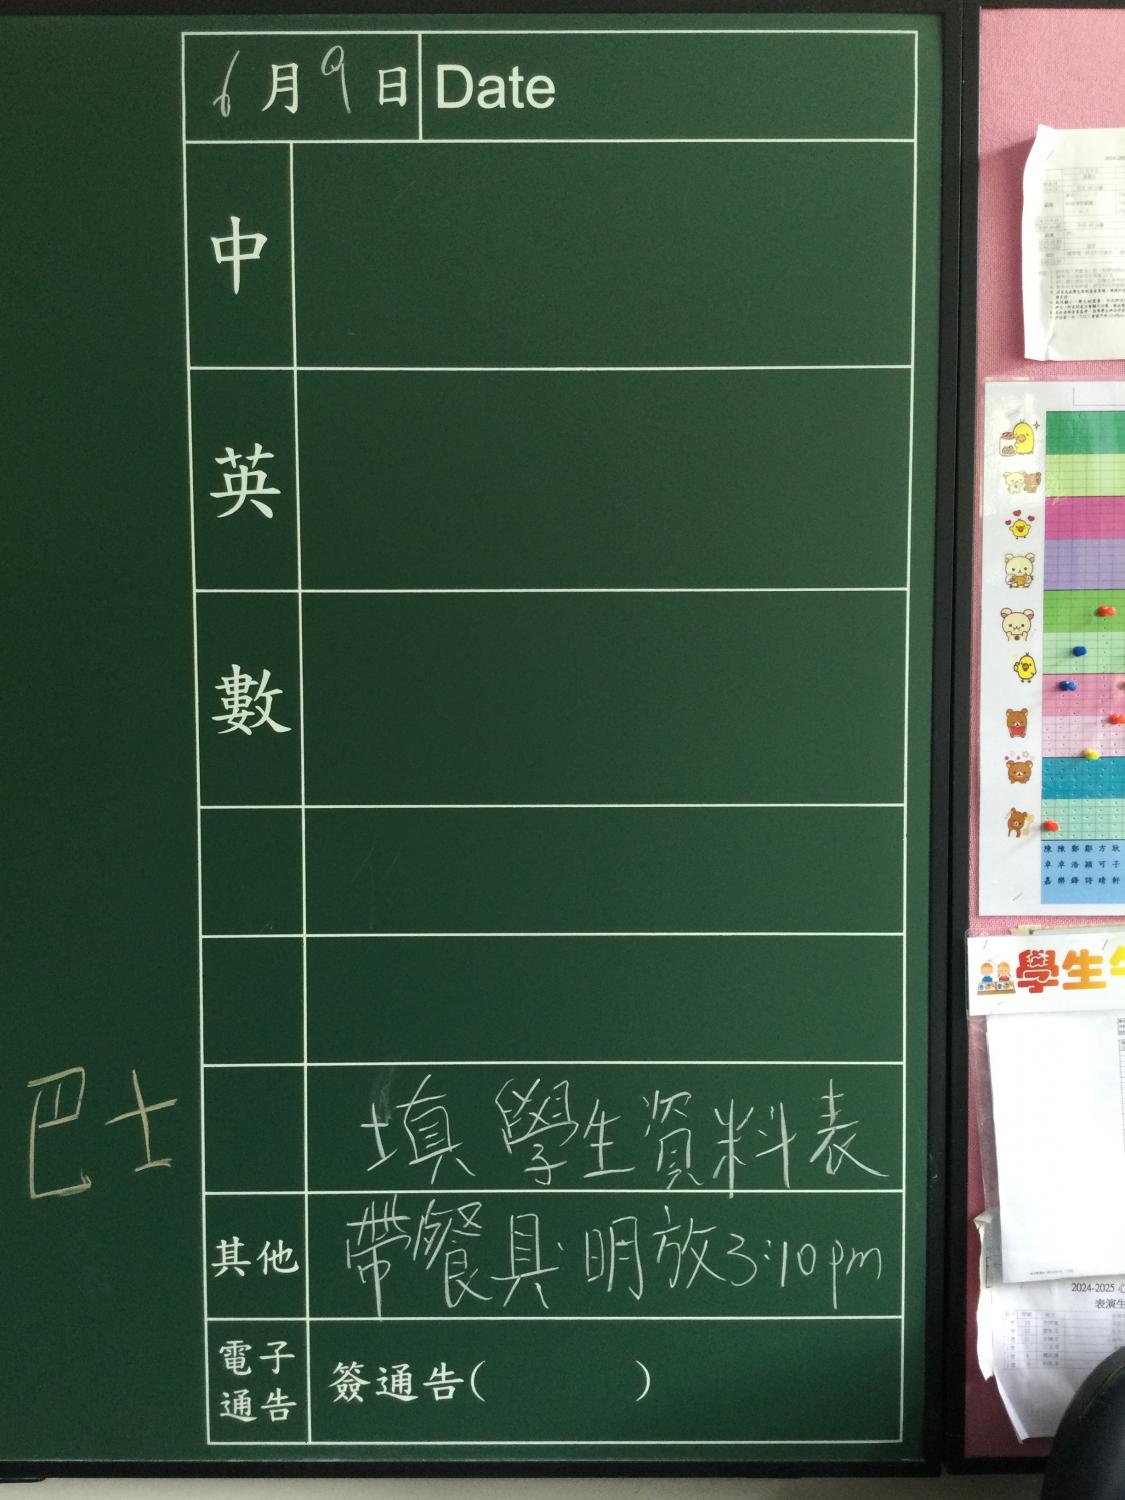 6月9日 Date
中
英
數
填 學生資料表
其他 帶餐具 明放3:10pm
電子
通告
簽通告(          )
巴士
陳 陳 鄭 鄭 方 耿
卓 卓 浩 穎 可 子
嘉 樂 鋒 詩 晴 軒
學生
2024-2025
表演